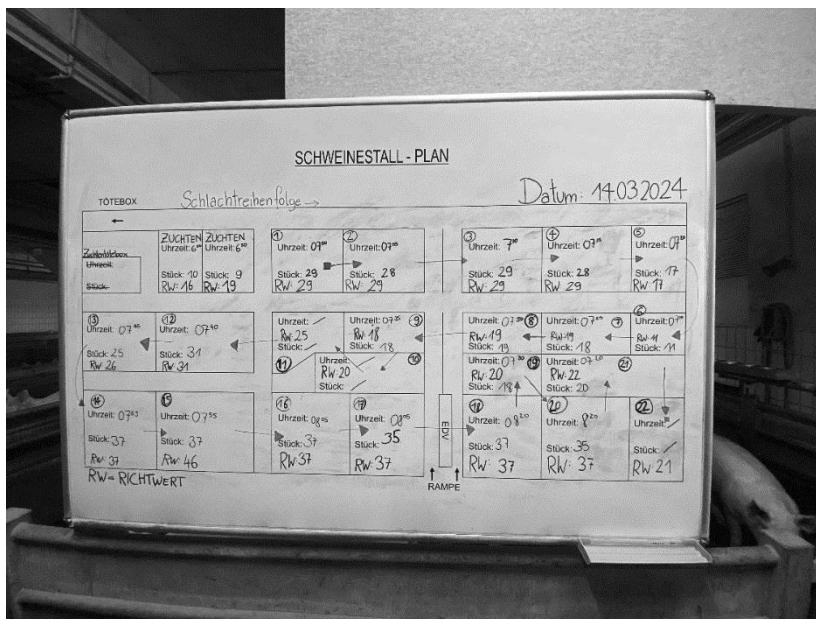 SCHWEINESTALL - PLAN
TÖTEBOX
Schlachtreihenfolge →
Datum: 14.03.2024
←
Zuchtentötebox
Uhrzeit:
Stück:
ZUCHTEN
Uhrzeit:
Stück: 10
RW: 16
ZUCHTEN
Uhrzeit:
Stück: 9
RW: 19
①
Uhrzeit:
Stück: 29
RW: 29
②
Uhrzeit:
Stück: 28
RW: 29
③
Uhrzeit:
Stück: 29
RW: 29
④
Uhrzeit:
Stück: 28
RW 29
⑤
Uhrzeit:
Stück: 17
RW 17
⑬
Uhrzeit:
Stück: 25
RW 26
⑫
Uhrzeit: 07⁴⁰
Stück: 31
RW 31
Uhrzeit: /
RW: 25
Stück: /
⑪
Uhrzeit: 07³⁵ ⑨
RW 18
Stück: 18
Uhrzeit: / ⑩
RW: 20
Stück: /
Uhrzeit: ⑧
RW: 19
Stück: 19
Uhrzeit: ⑦
RW: 19
Stück: 18
⑥
Uhrzeit:
RW: 11
Stück: 11
Uhrzeit: ⑲
RW: 20
Stück: 18
Uhrzeit: ㉑
RW: 22
Stück: 20
⑭
Uhrzeit:
Stück: 37
RW: 37
⑮
Uhrzeit: 07⁵⁵
Stück: 37
RW: 46
⑯
Uhrzeit: 08⁰⁵
Stück: 37
RW: 37
⑰
Uhrzeit: 08⁰⁵
Stück: 35
RW: 37
EDV
⑱
Uhrzeit: 08²⁰
Stück: 37
RW: 37
⑳
Uhrzeit: 8²⁰
Stück: 35
RW: 37
㉒
Uhrzeit: /
Stück: /
RW: 21
RW = RICHTWERT
RAMPE